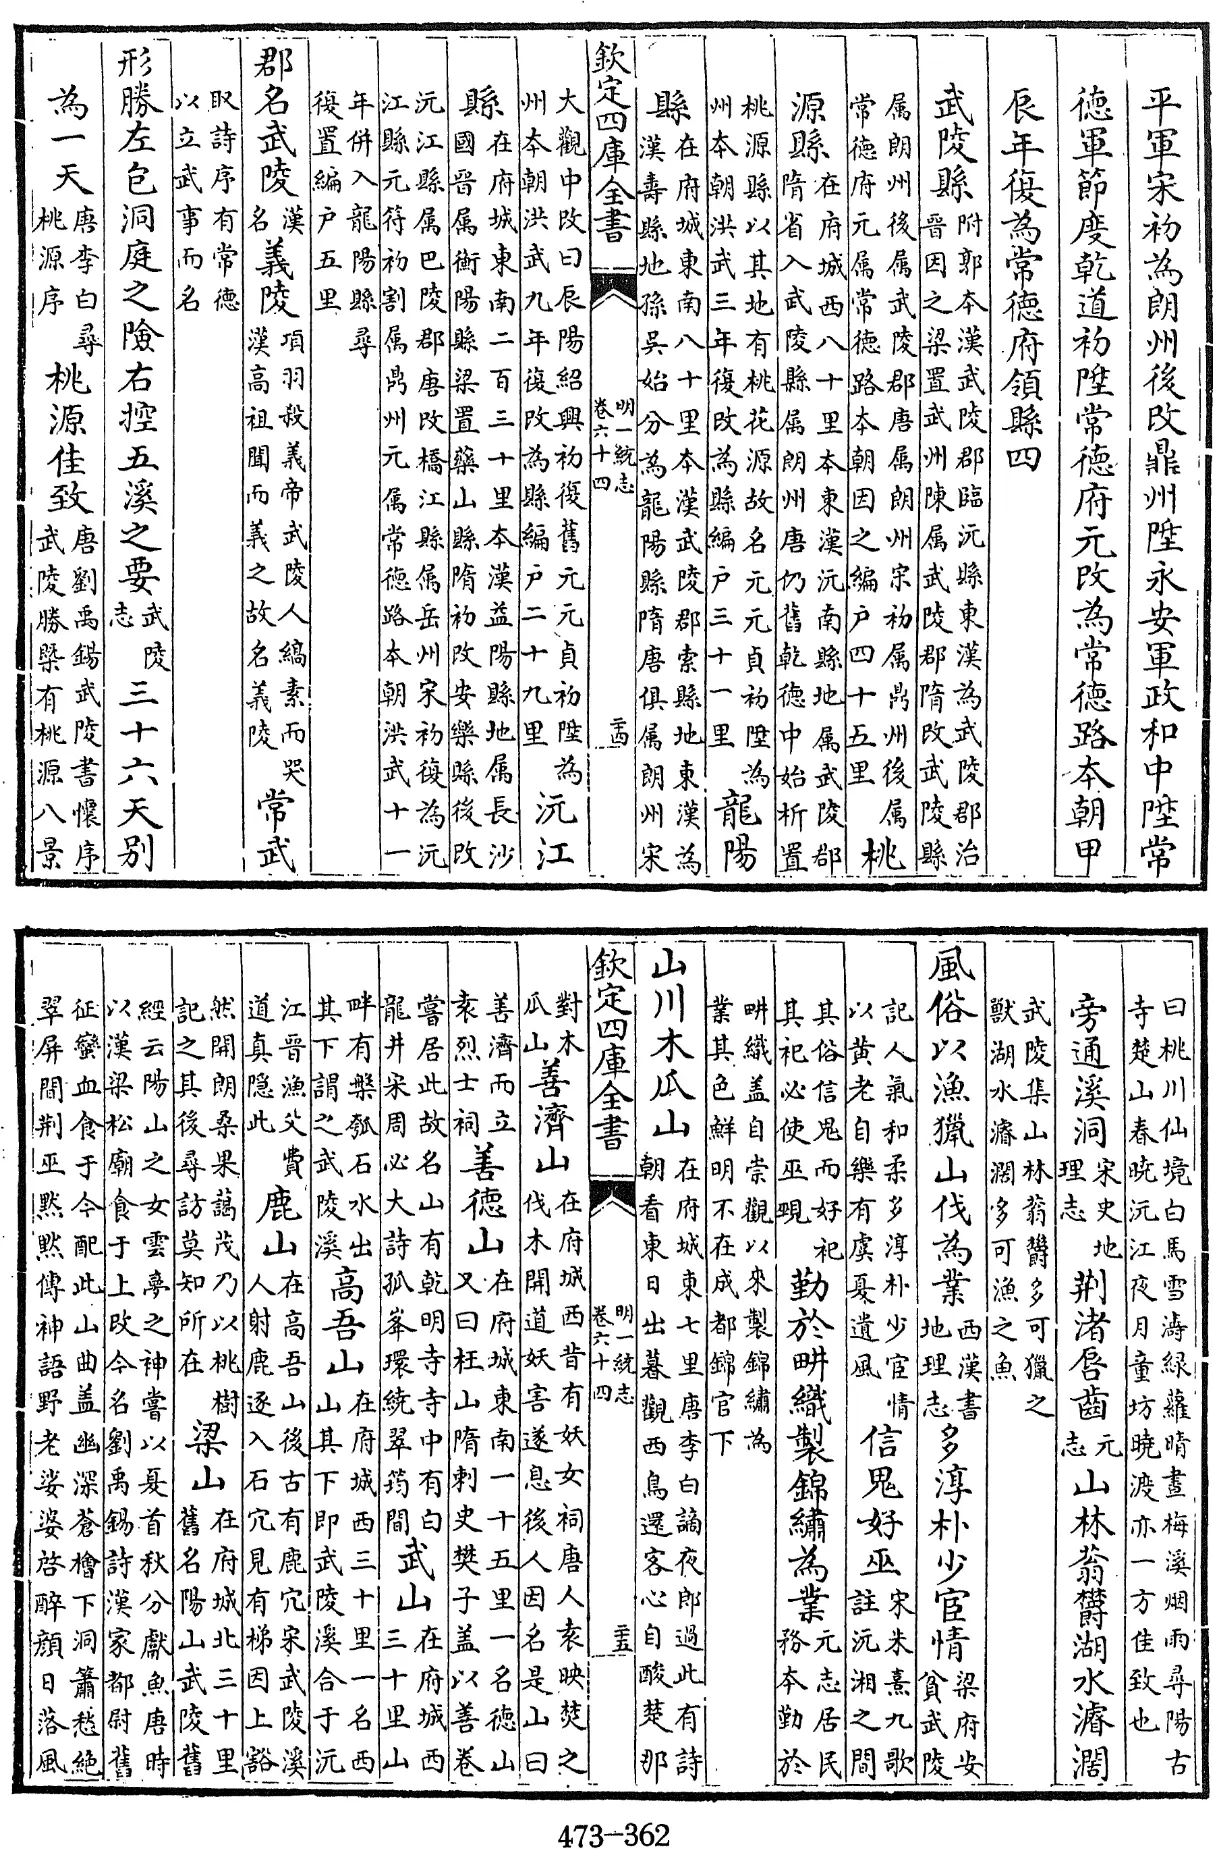 平軍宋初為朗州後改鼎州陞永安軍政和中陞常
德軍節度乾道初陞常德府元改為常德路本朝甲
辰年復為常德府領縣四
武陵縣附郭本漢武陵郡臨沅縣東漢為武陵郡治晉因之梁置武州陳属武陵郡隋改武陵縣
属朗州後属武陵郡唐属朗州宋初属鼎州後属常德府元属常德路本朝因之編户四十五里桃
源縣在府城西八十里本東漢沅南縣地属武陵郡隋省入武陵縣属朗州唐仍舊乾德中始析置
桃源縣以其地有桃花源故名元元貞初陞為州本朝洪武三年復改為縣編户三十一里龍陽
縣在府城東南八十里本漢武陵郡索縣地東漢為漢壽縣地孫吳始分為龍陽縣隋唐俱属朗州宋
欽定四庫全書 明一統志卷六十四 二十四
大觀中改曰辰陽紹興初復舊元元貞初陞為州本朝洪武九年復改為縣編户二十九里沅江
縣在府城東南二百三十里本漢益陽縣地属長沙國晉属衡陽縣梁置藥山縣隋初改安樂縣後改
沅江縣属巴陵郡唐改橋江縣属岳州宋初復為沅江縣元符初割属鼎州元属常德路本朝洪武十一
年併入龍陽縣尋復置編户五里
郡名武陵漢名義陵項羽殺義帝武陵人縞素而哭漢高祖聞而義之故名義陵常武
取詩序有常德以立武事而名
形勝左包洞庭之險右控五溪之要武陵志三十六天别
為一天唐李白尋桃源序桃源佳致唐劉禹錫武陵書懷序武陵勝槩有桃源八景
曰桃川仙境白馬雪濤綠蘿晴晝梅溪烟雨尋陽古寺楚山春曉沅江夜月童坊曉渡亦一方佳致也
旁通溪洞宋史地理志荆渚唇齒元志山林蓊欝湖水濬濶
武陵集山林蓊欝多可獵之獸湖水濬濶多可漁之魚
風俗以漁獵山伐為業西漢書地理志多淳朴少宦情梁府安貧武陵
記人氣和柔多淳朴少宦情以黄老自樂有虞夏遺風信鬼好巫宋朱熹九歌註沅湘之間
其俗信鬼而好祀其祀必使巫覡勤於畊織製錦繡為業元志居民務本勤於
畊織盖自崇觀以來製錦繡為業其色鮮明不在成都錦官下
山川木瓜山在府城東七里唐李白謫夜郎過此有詩朝看東日出暮觀西鳥還客心自酸楚那
欽定四庫全書 明一統志卷六十四 二十五
對木瓜山善濟山在府城西昔有妖女祠唐人袁映焚之伐木開道妖害遂息後人因名是山曰
善濟而立袁烈士祠善德山在府城東南一十五里一名德山又曰枉山隋刺史樊子盖以善卷
嘗居此故名山有乾明寺寺中有白龍井宋周必大詩孤峯環繞翠筠間武山在府城西三十里山
畔有槃瓠石水出其下謂之武陵溪高吾山在府城西三十里一名西山其下即武陵溪合于沅
江晉漁父黄道真隱此鹿山在高吾山後古有鹿穴宋武陵溪人射鹿逐入石穴見有梯因上豁
然開朗桑果藹茂乃以桃樹記之其後尋訪莫知所在梁山在府城北三十里舊名陽山武陵舊
經云陽山之女雲夢之神嘗以夏首秋分獻魚唐時以漢梁松廟食于上改今名劉禹錫詩漢家都尉舊
征蠻血食于今配此山曲盖幽深蒼檜下洞簫愁絕翠屏間荆巫黙黙傳神語野老娑婆啓醉顔日落風
473-362